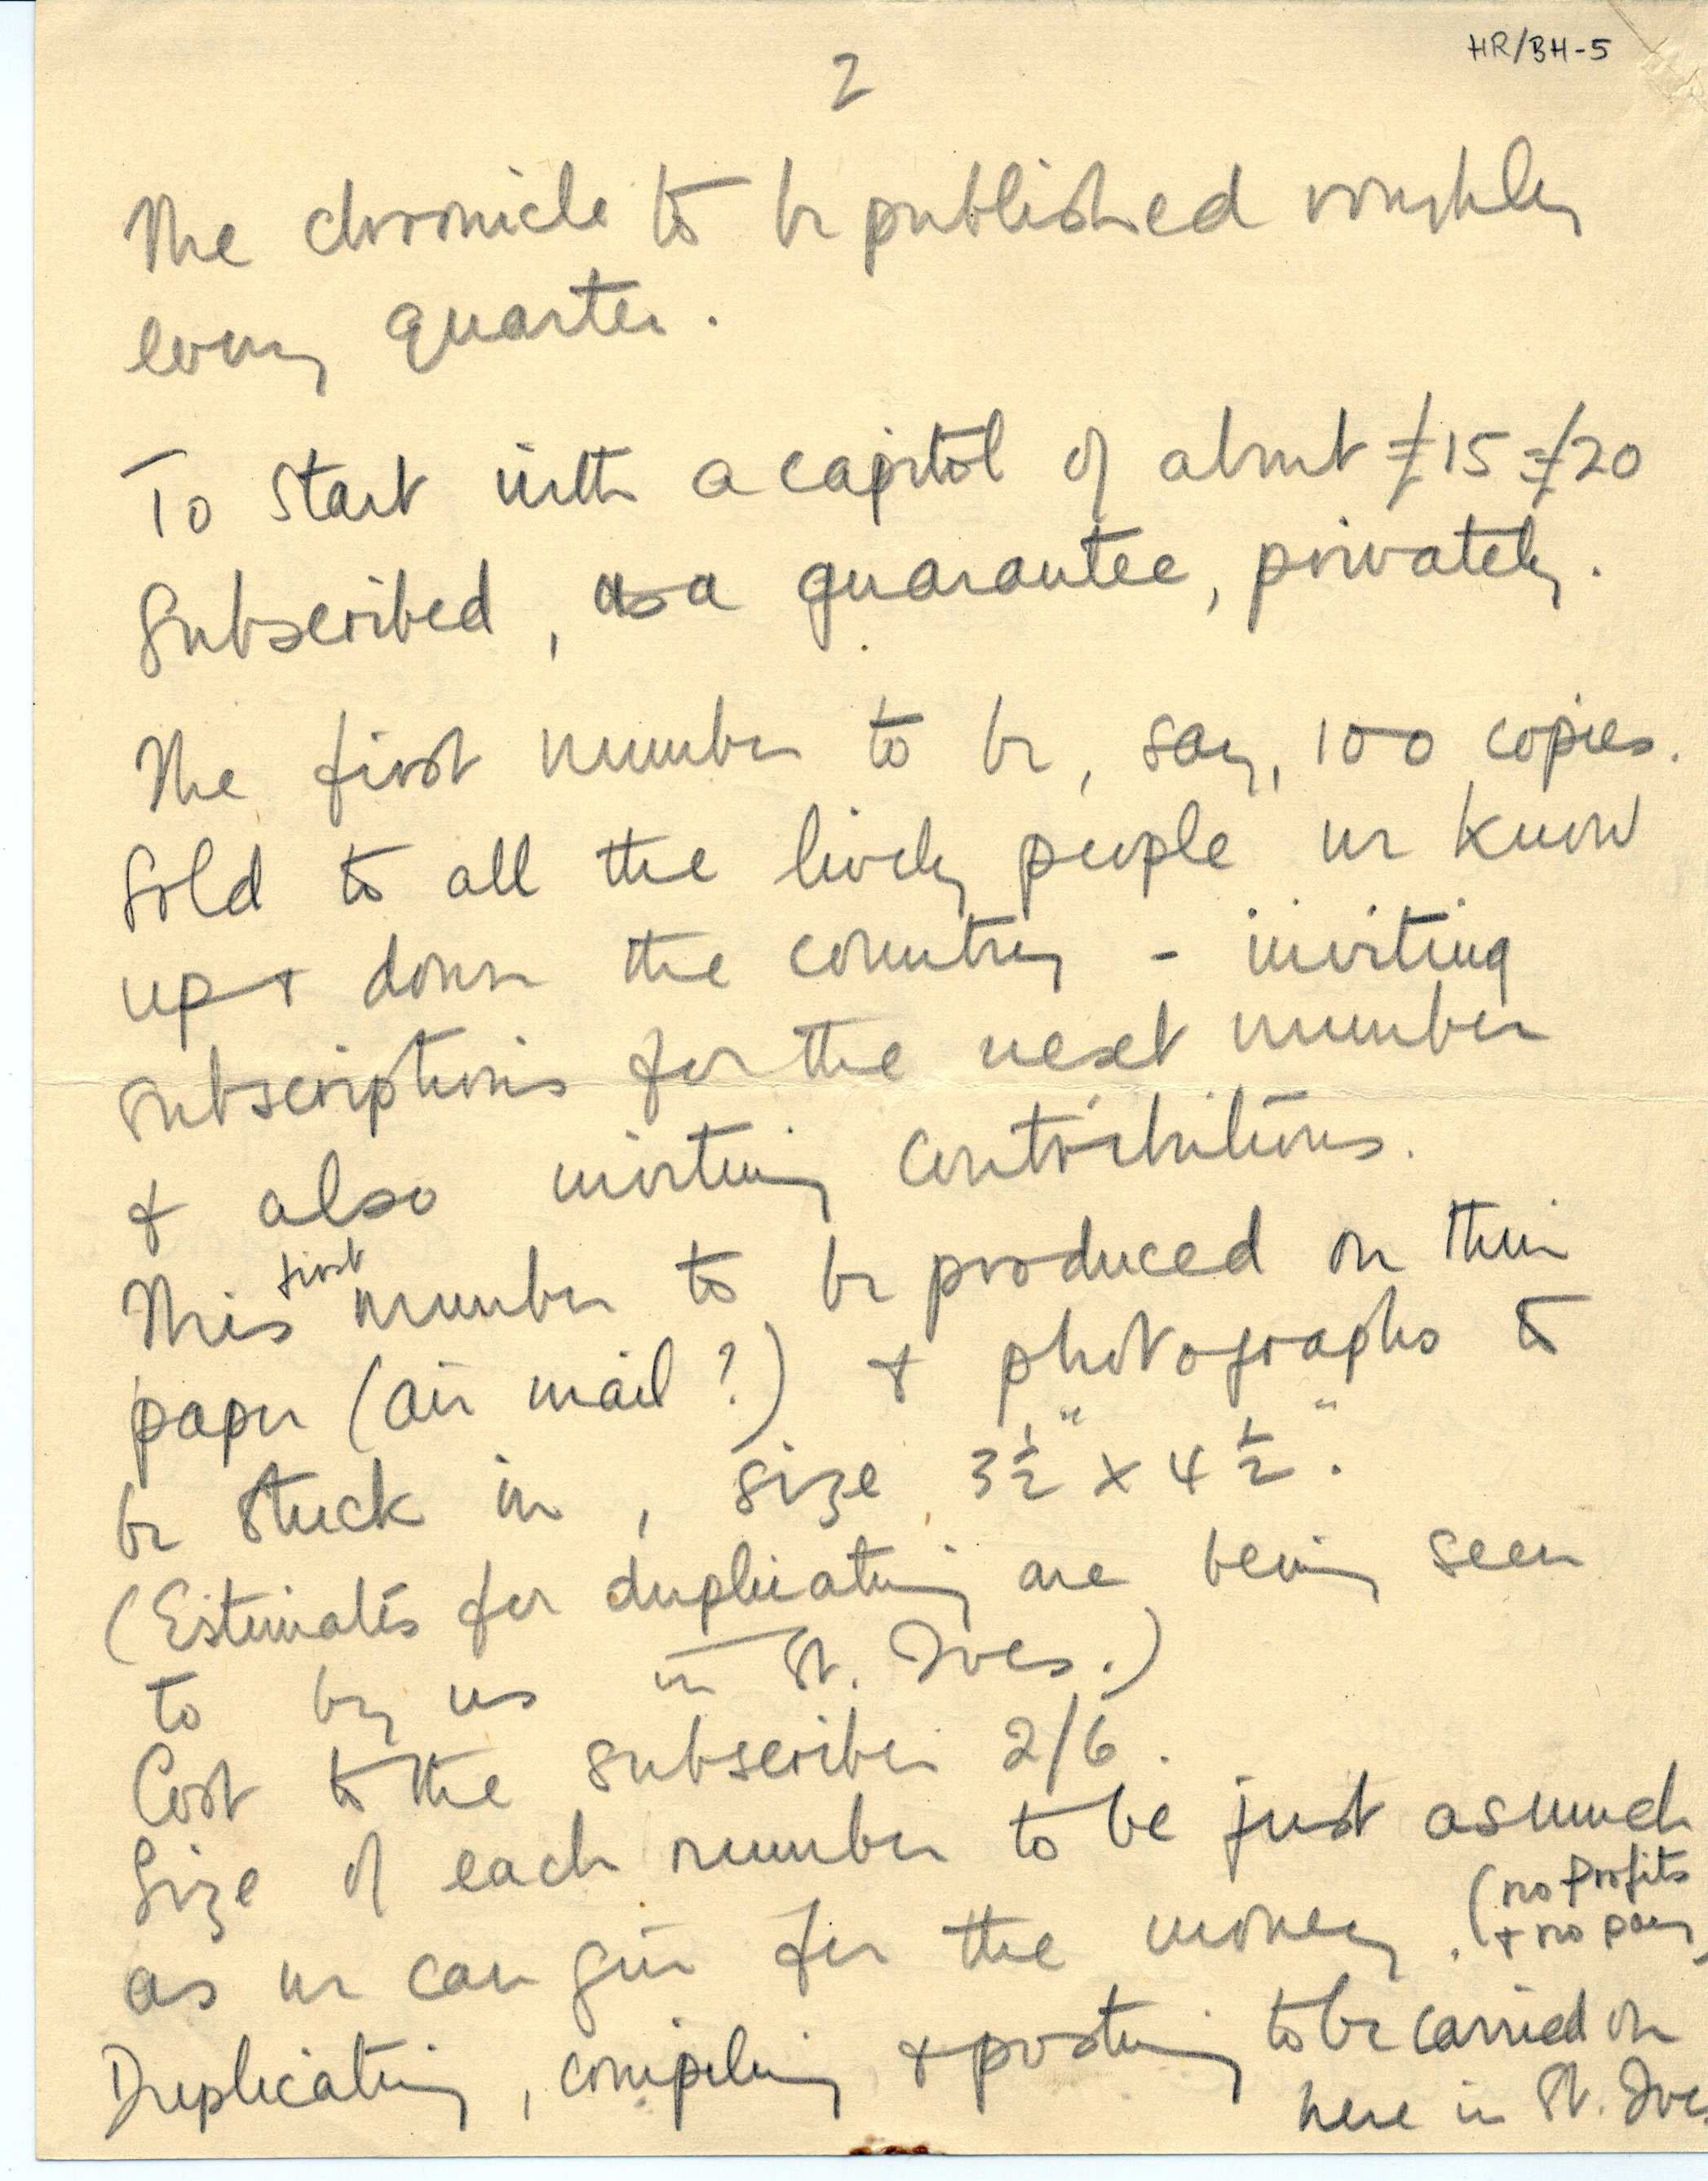 HR/BH-5
2
The chronicle to be published roughly
every quarter.
To start with a capitol of about £15 = £20
Subscribed, as a guarantee, privately.
The first number to be, say, 100 copies.
Sold to all the lively people we know
up & down the country - inviting
subscriptions for the next number
& also inviting contributions.
This first number to be produced on thin
paper (air mail?) & photographs to
be stuck in, size 3½" x 4½".
(Estimates for duplicating are being seen
to by us in St. Ives.)
Cost to the subscriber 2/6.
Size of each number to be just as much
as we can give for the money. (no profits
& no pay)
Duplicating, compiling & posting to be carried on
here in St. Ives